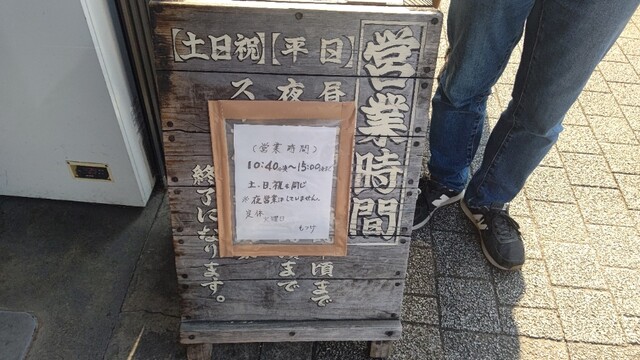 営業時間
【平日】
昼
頃まで
夜
まで
【土日祝】
ス
終了になります。
(営業時間)
10:40から〜15:00まで
土、日、祝も同じ
※夜営業はしていません。
定休
火曜日